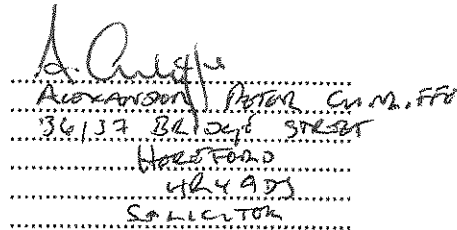 ALEXANDER PETER CUNLIFFE
36/37 BRIDGE STREET
HEREFORD
HR4 9DJ
SOLICITOR